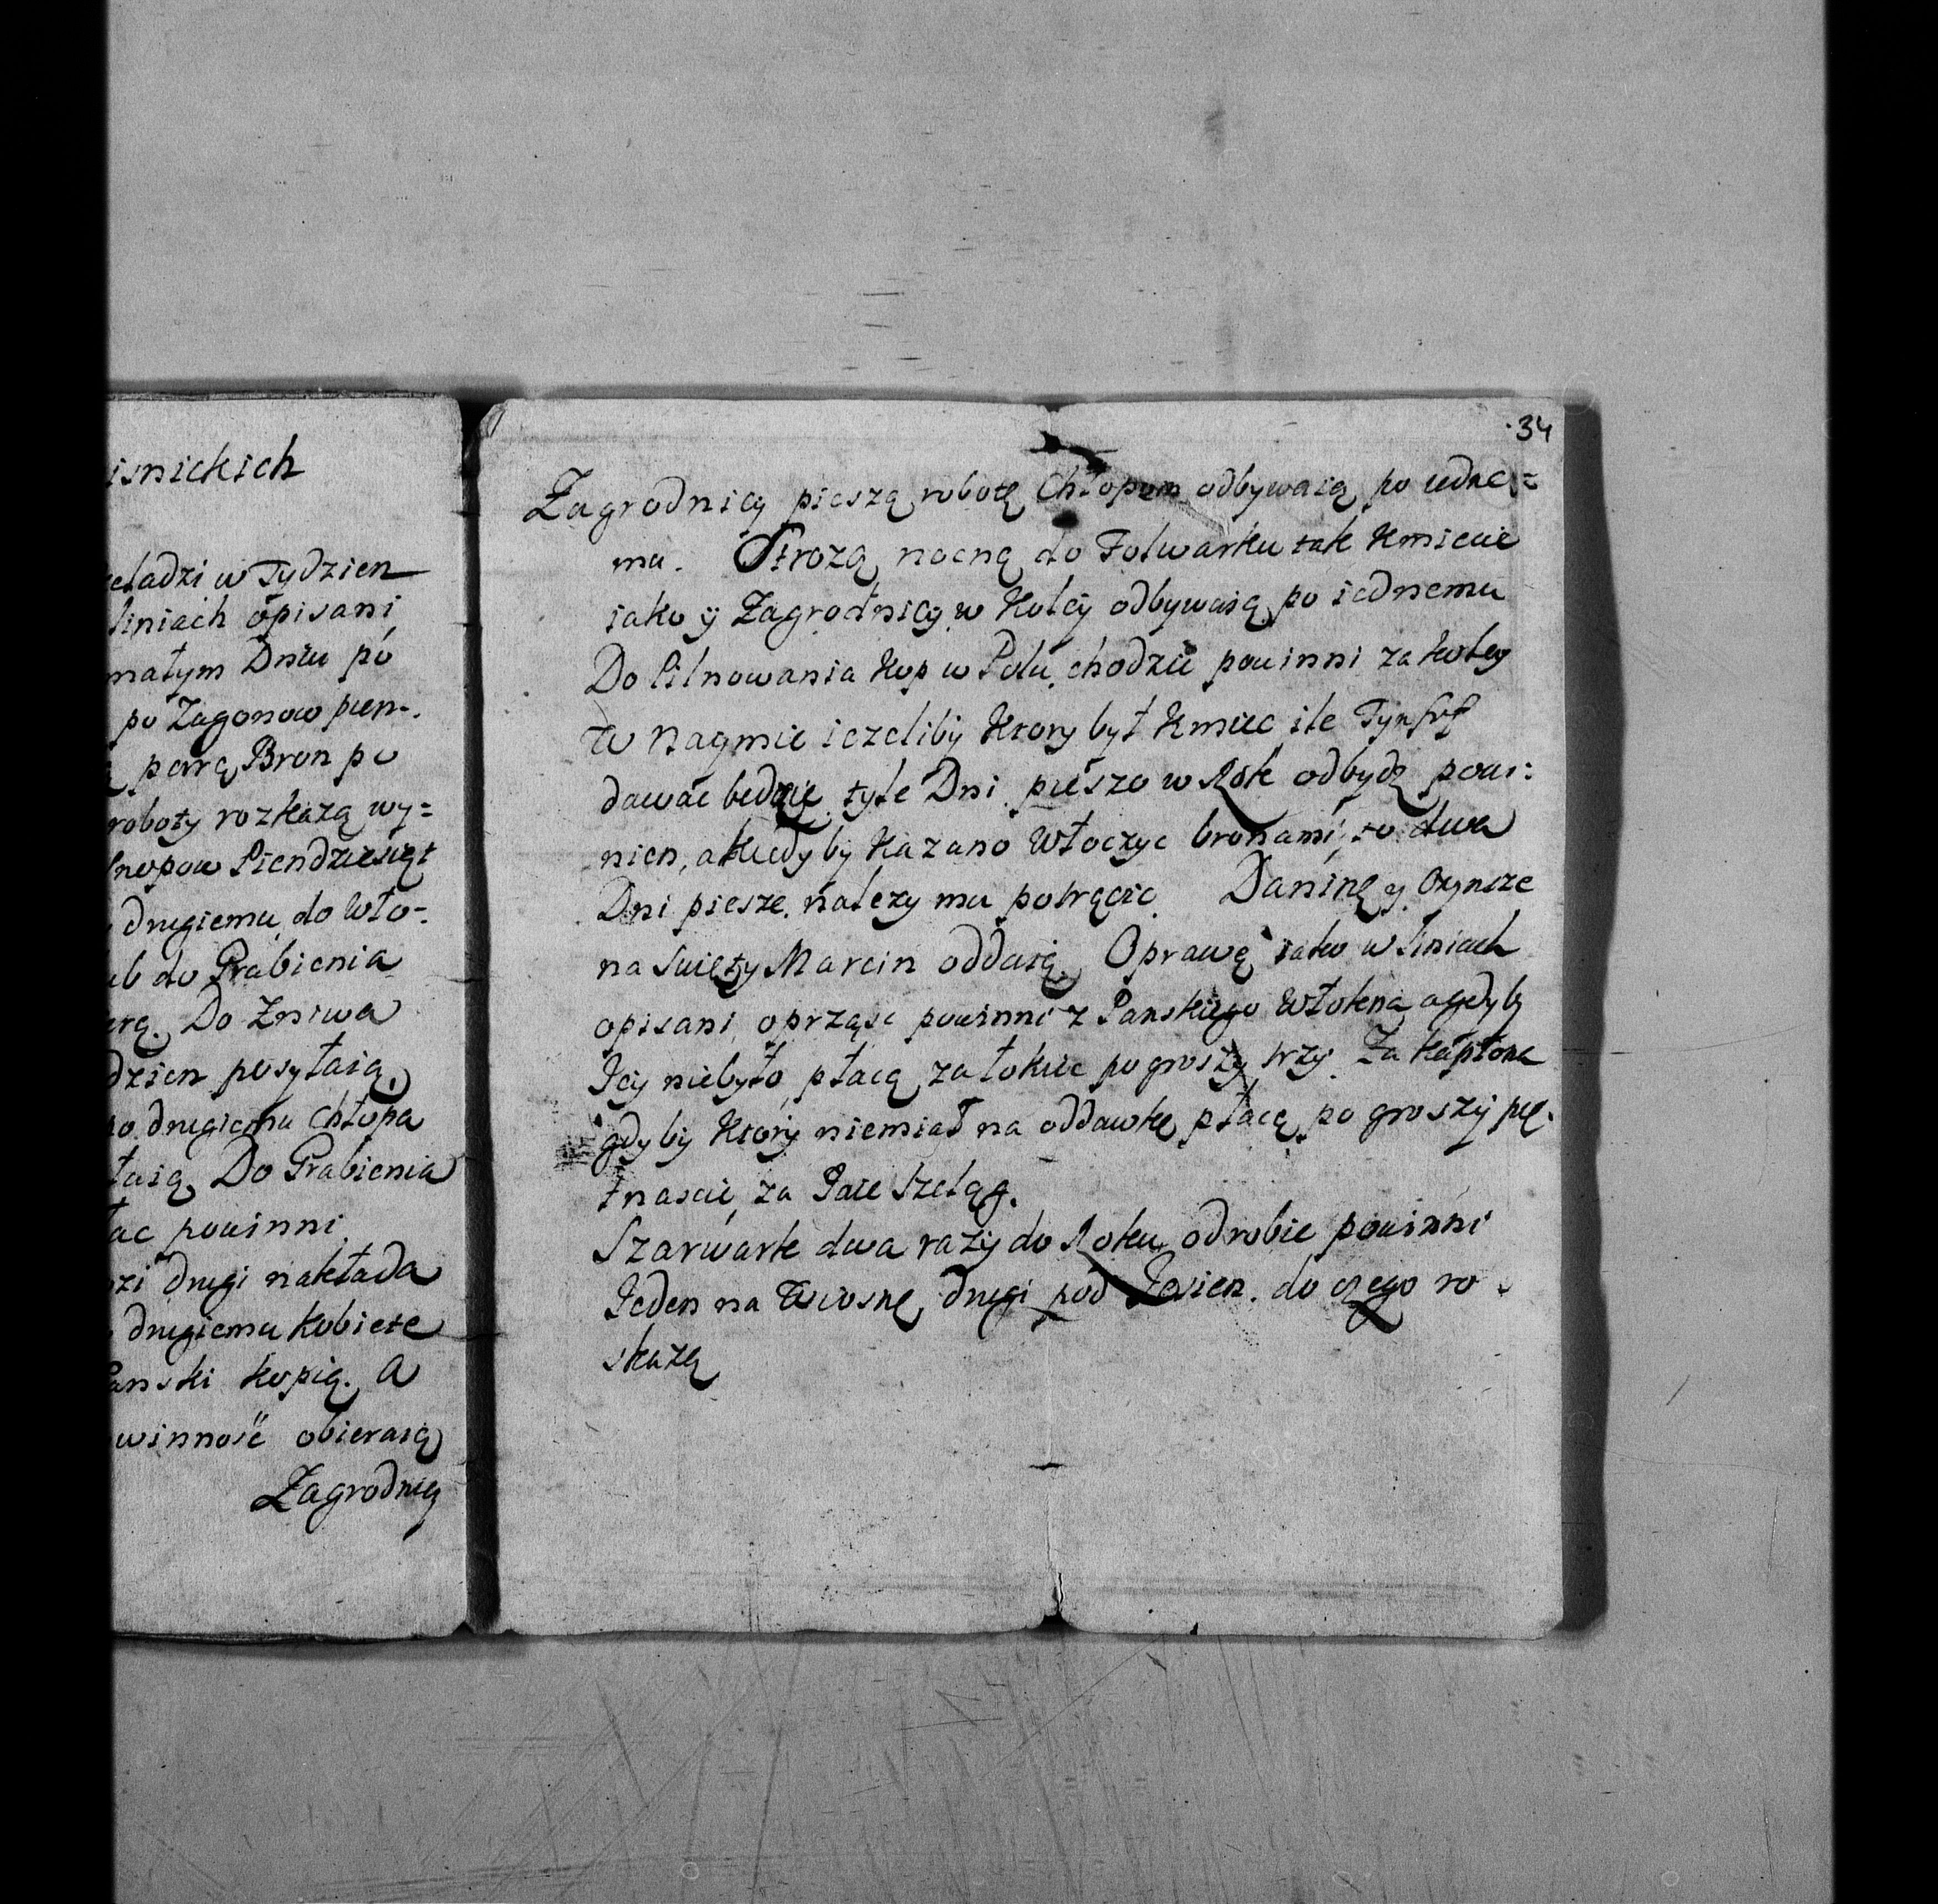 isnickich
eladzi w Tydzien
liniach opisani
małym Dniu po
po Zagonow pien-
parą Bron po
roboty rozkazą wy=
snopow Piendziesiąt
drugiemu do Wło-
ub do Grabienia
arą. Do Zniwa
dzien posyłaią,
po drugiemu chłopa
łaią, Do Grabienia
ac powinni
zi drugi nakłada
drugiemu Kobiete
Panski kopią. A
winność obieraią
Zagrodnicy
34
Zagrodnicy pieszą robotę Chłopem odbywaią po iedne=
mu. Strozą nocną do Folwarku tak Kmiecie
iako ÿ Zagrodnicy w Koleÿ odbywaią po iednemu
Do Pilnowania Kop w Polu chodzić powinni za koleÿ
W Naymie iezeliby Ktory był Kmiec ile Tynffow
dawać bedzie tyle Dni pieszo w Rok odbydz powi:
nien, a kiedy by Kazano Włoczyc bronami, to dwa
Dni piesze nalezy mu potrącic. Daninę y Czynsze
na Swięty Marcin oddaią. Oprawę iako w liniach
opisani, oprząść powinni z Panskiego Włokna a gdyby
Jeÿ niebyło, płacą za łokiec po groszy trzy. Za kapłona
gdyby Ktory niemiał na oddawkę płacą po groszÿ pię-
tnascie, za Jaie Szeląg.
Szarwark dwa razÿ do Roku odrobic powinni
Jeden na Wiosnę, drugi pod Jesien. do czego ro-
skazą